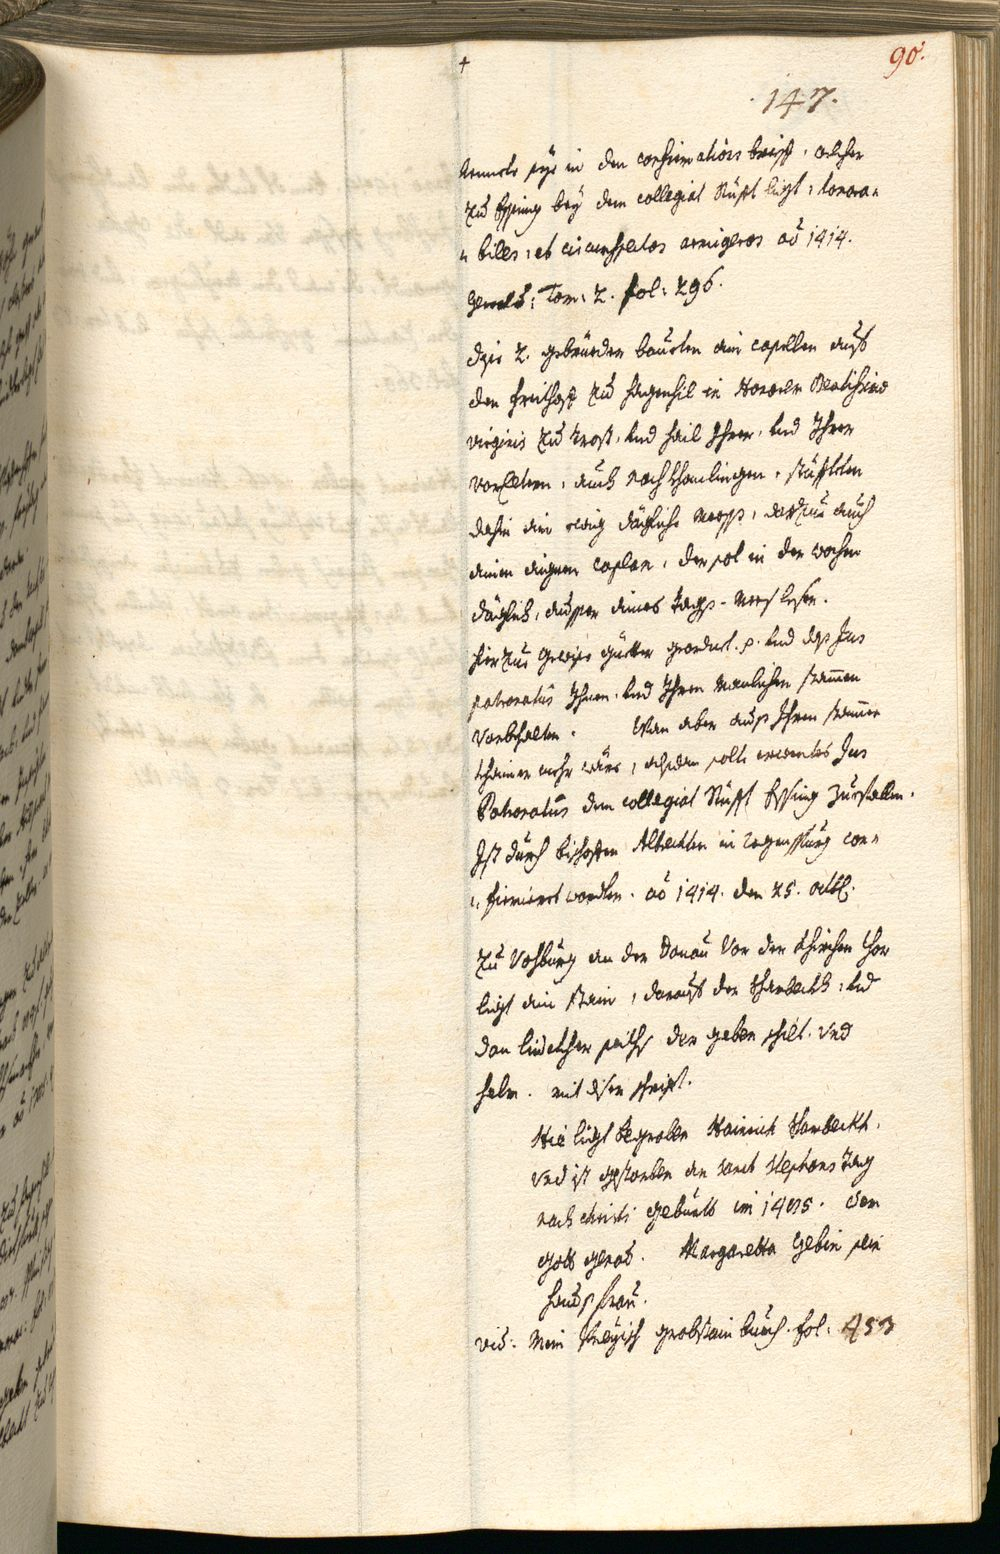 +
90.
147.
nennete sye in den confirmations brieff, welcher
zu Essing bey dem collegiat Stüfft ligt, honora=
= biles, et circumspectos armigeros aō 1414.
Gewold: Tom: 2. fol: 296.
dise 2. gebrüeder bauten ain capellen auf
den freithoff zu Hagenhil in Honorem Beatissimae
virginis zu trost, und hail Ihrer, und Ihrer
vorEltern, auch nachkhomlingen, stüfteten
dahin ain ewig däglich Mess, darzue auch
ainen aignen caplan, der sol in der wochen
däglich, ausser aines Tags Mess lesen.
hierzue gewise güetter geordnet. p. und das Jus
patronatus Ihnen, und Ihren Manlichen stammen
vorbehalten. Wan aber auss Ihrem stammen
khainer mehr wäre, alsdan solte ernentes Jus
Patronatus dem collegiat Stüfft Essing zuefallen.
Ist durch bischoffen Albrechten in Regenspurg con=
= firmiert worden. aō 1414. den 25. octob.
Zu Vohburg an der Donau vor der Khirchen thor
ligt ain stain, darauf der Khambeckh, und
dan lincker seiths der geben schilt. und
helm. mit diser schrift.
Hie ligt Begraben Hainrich Khambeckh,
und ist gestorben an sanct stephans Tag
nach christi geburth im 1405. dem
gott genad. Margaretta Gebin sein
hausfrau.
vid: Mein khreyish grabstain buech. fol: 453